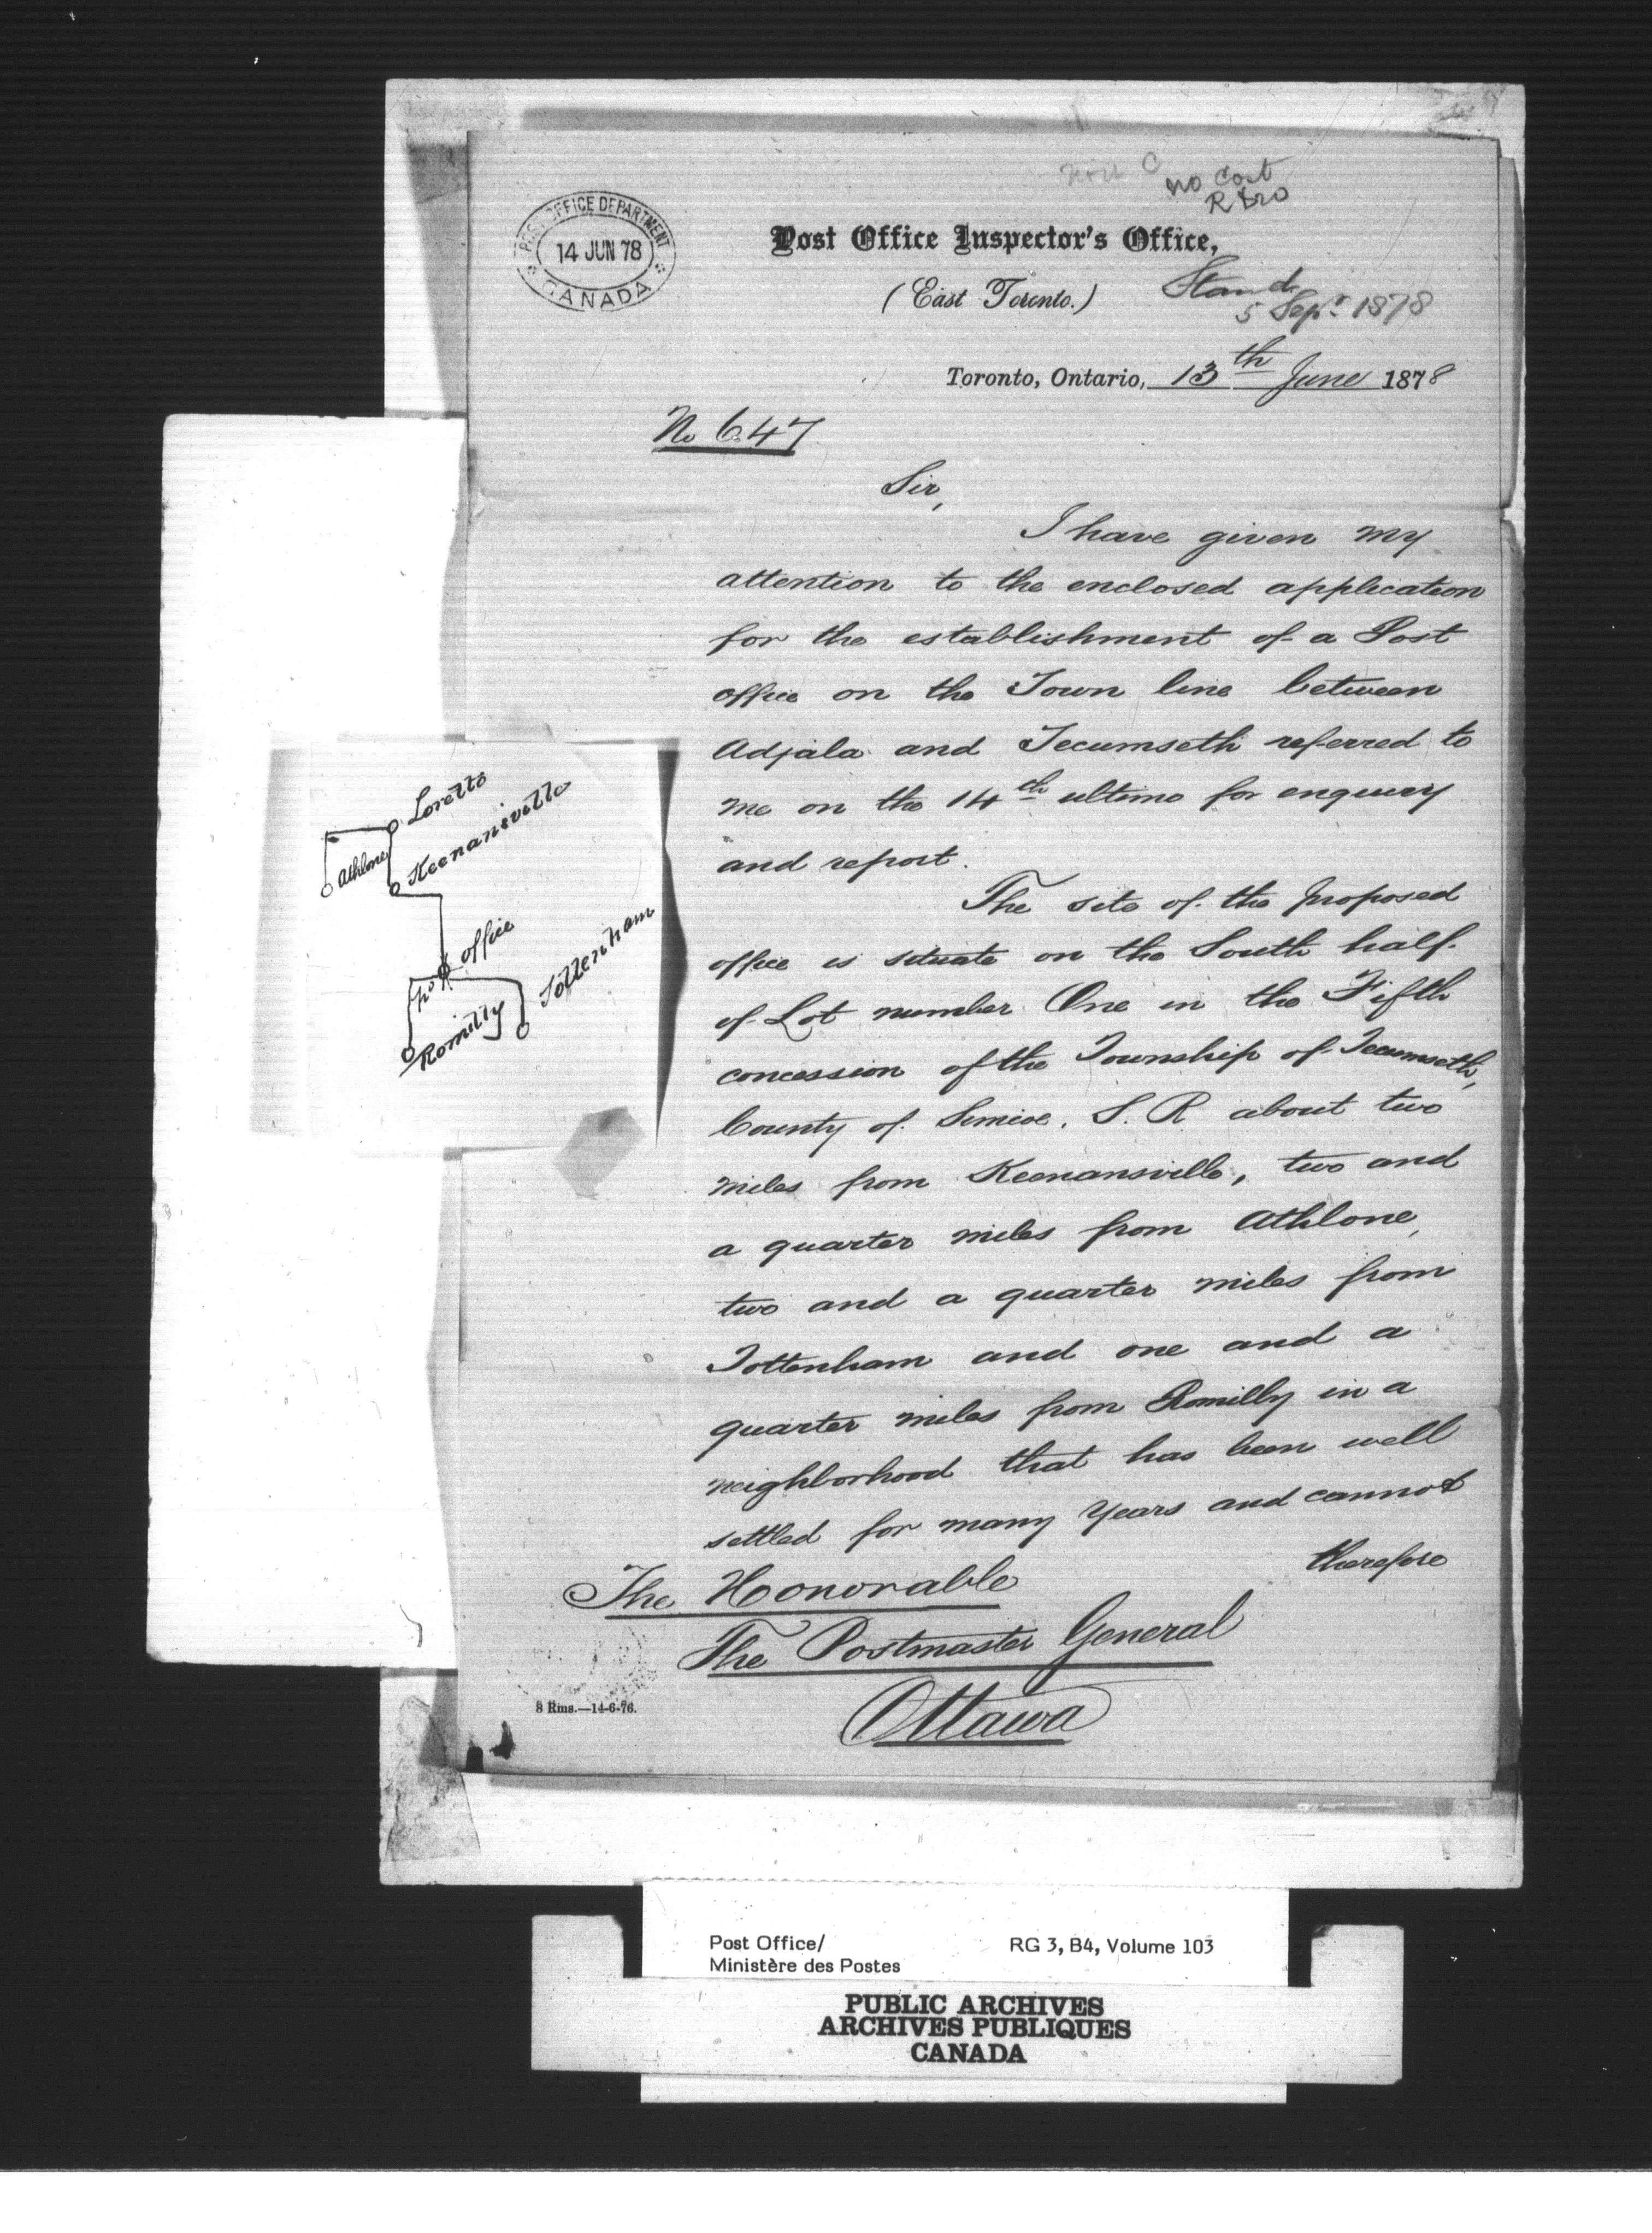 no Cost
POST OFFICE DEPARTMENT
14 JUN 78
CANADA
Post Office Inspector's Office,
(East Toronto.)
Stand
5 Sepr. 1878
Toronto, Ontario, 13th June 1878
No 647
Sir,
I have given my
attention to the enclosed application
for the establishment of a Post
office on the Town line between
Adjala and Tecumseth referred to
me on the 14th ultimo for enquiry
and report.
The site of the proposed
office is situate on the South half
of Lot number One in the Fifth
concession of the Township of Tecumseth,
County of Simcoe, S. R about two
miles from Keenansville, two and
a quarter miles from Athlone,
two and a quarter miles from
Tottenham and one and a
quarter miles from Romilly in a
neighborhood that has been well
settled for many years and cannot
therefore
The Honorable
The Postmaster General
Ottawa
8 Rms.—14-6-76.
Loretto
Keenansville
Athlone
office
Tottenham
Romilly
Post Office/ RG 3, B4, Volume 103
Ministère des Postes
PUBLIC ARCHIVES
ARCHIVES PUBLIQUES
CANADA